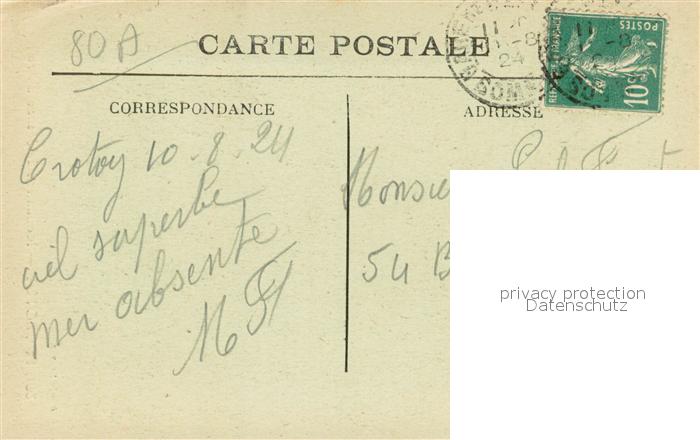 80A
CARTE POSTALE
11 -8
24
SOMME
11 -8
POSTES
10c
CORRESPONDANCE
ADRESSE
Crotoy 10-8-24
ciel superbe
mer absente
MF
Monsieu
54 B
privacy protection
Datenschutz